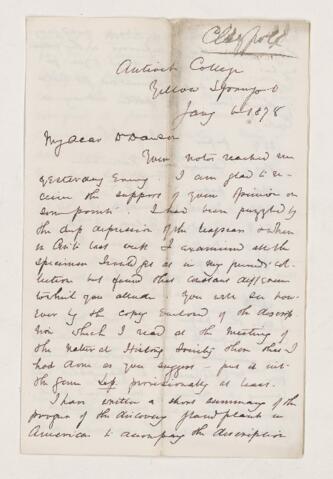 Claypole
Antioch College
Yellow Springs O
Jany 6 1878
My dear Dr Dawson
Your note reached me
yesterday Evening. I am glad to re-
ceive the support of your opinion on
some points. I had been puzzled by
the deep depression of the leafscars & when
in Cinti last week I examined all the
specimens I could get at in my friend's col-
lection but found that constant difference
to which you allude. You will see how-
ever by the copy Enclosed of the descrip-
tion which I read at the meeting of
the Natural History Society there that I
had done as you suggest - put it in
the genus Lep. provisionally at least.
I have written a short summary of the
progress of the discovery of land plants in
America to accompany the description